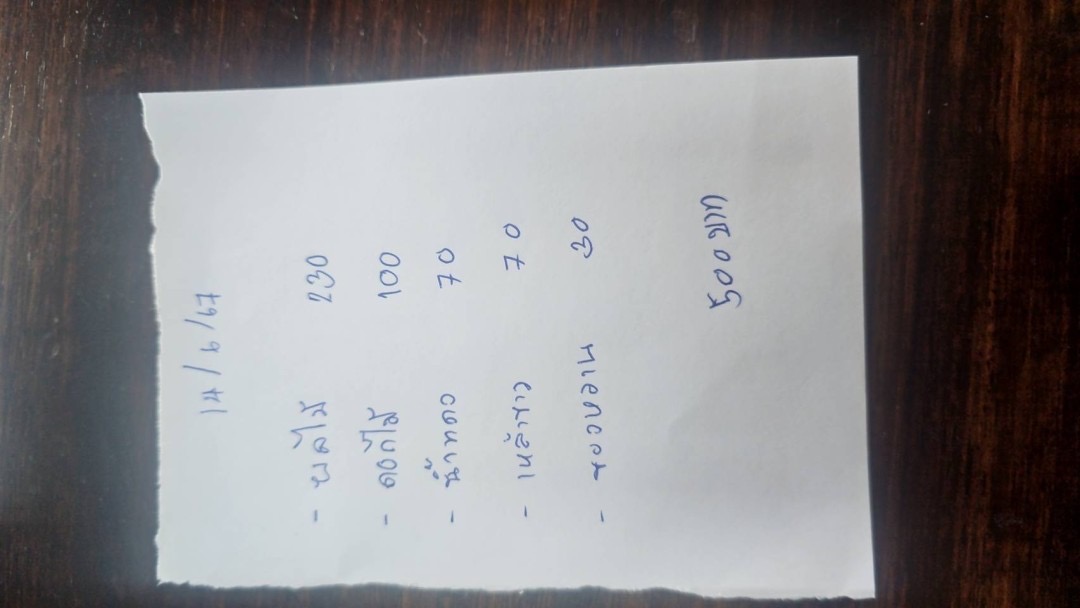 14/6/67
- ผลไม้ 230
- ดอกไม้ 100
- น้ำหดว 70
- เหล้าขาว 70
- ของหวาน 30
500 บาท